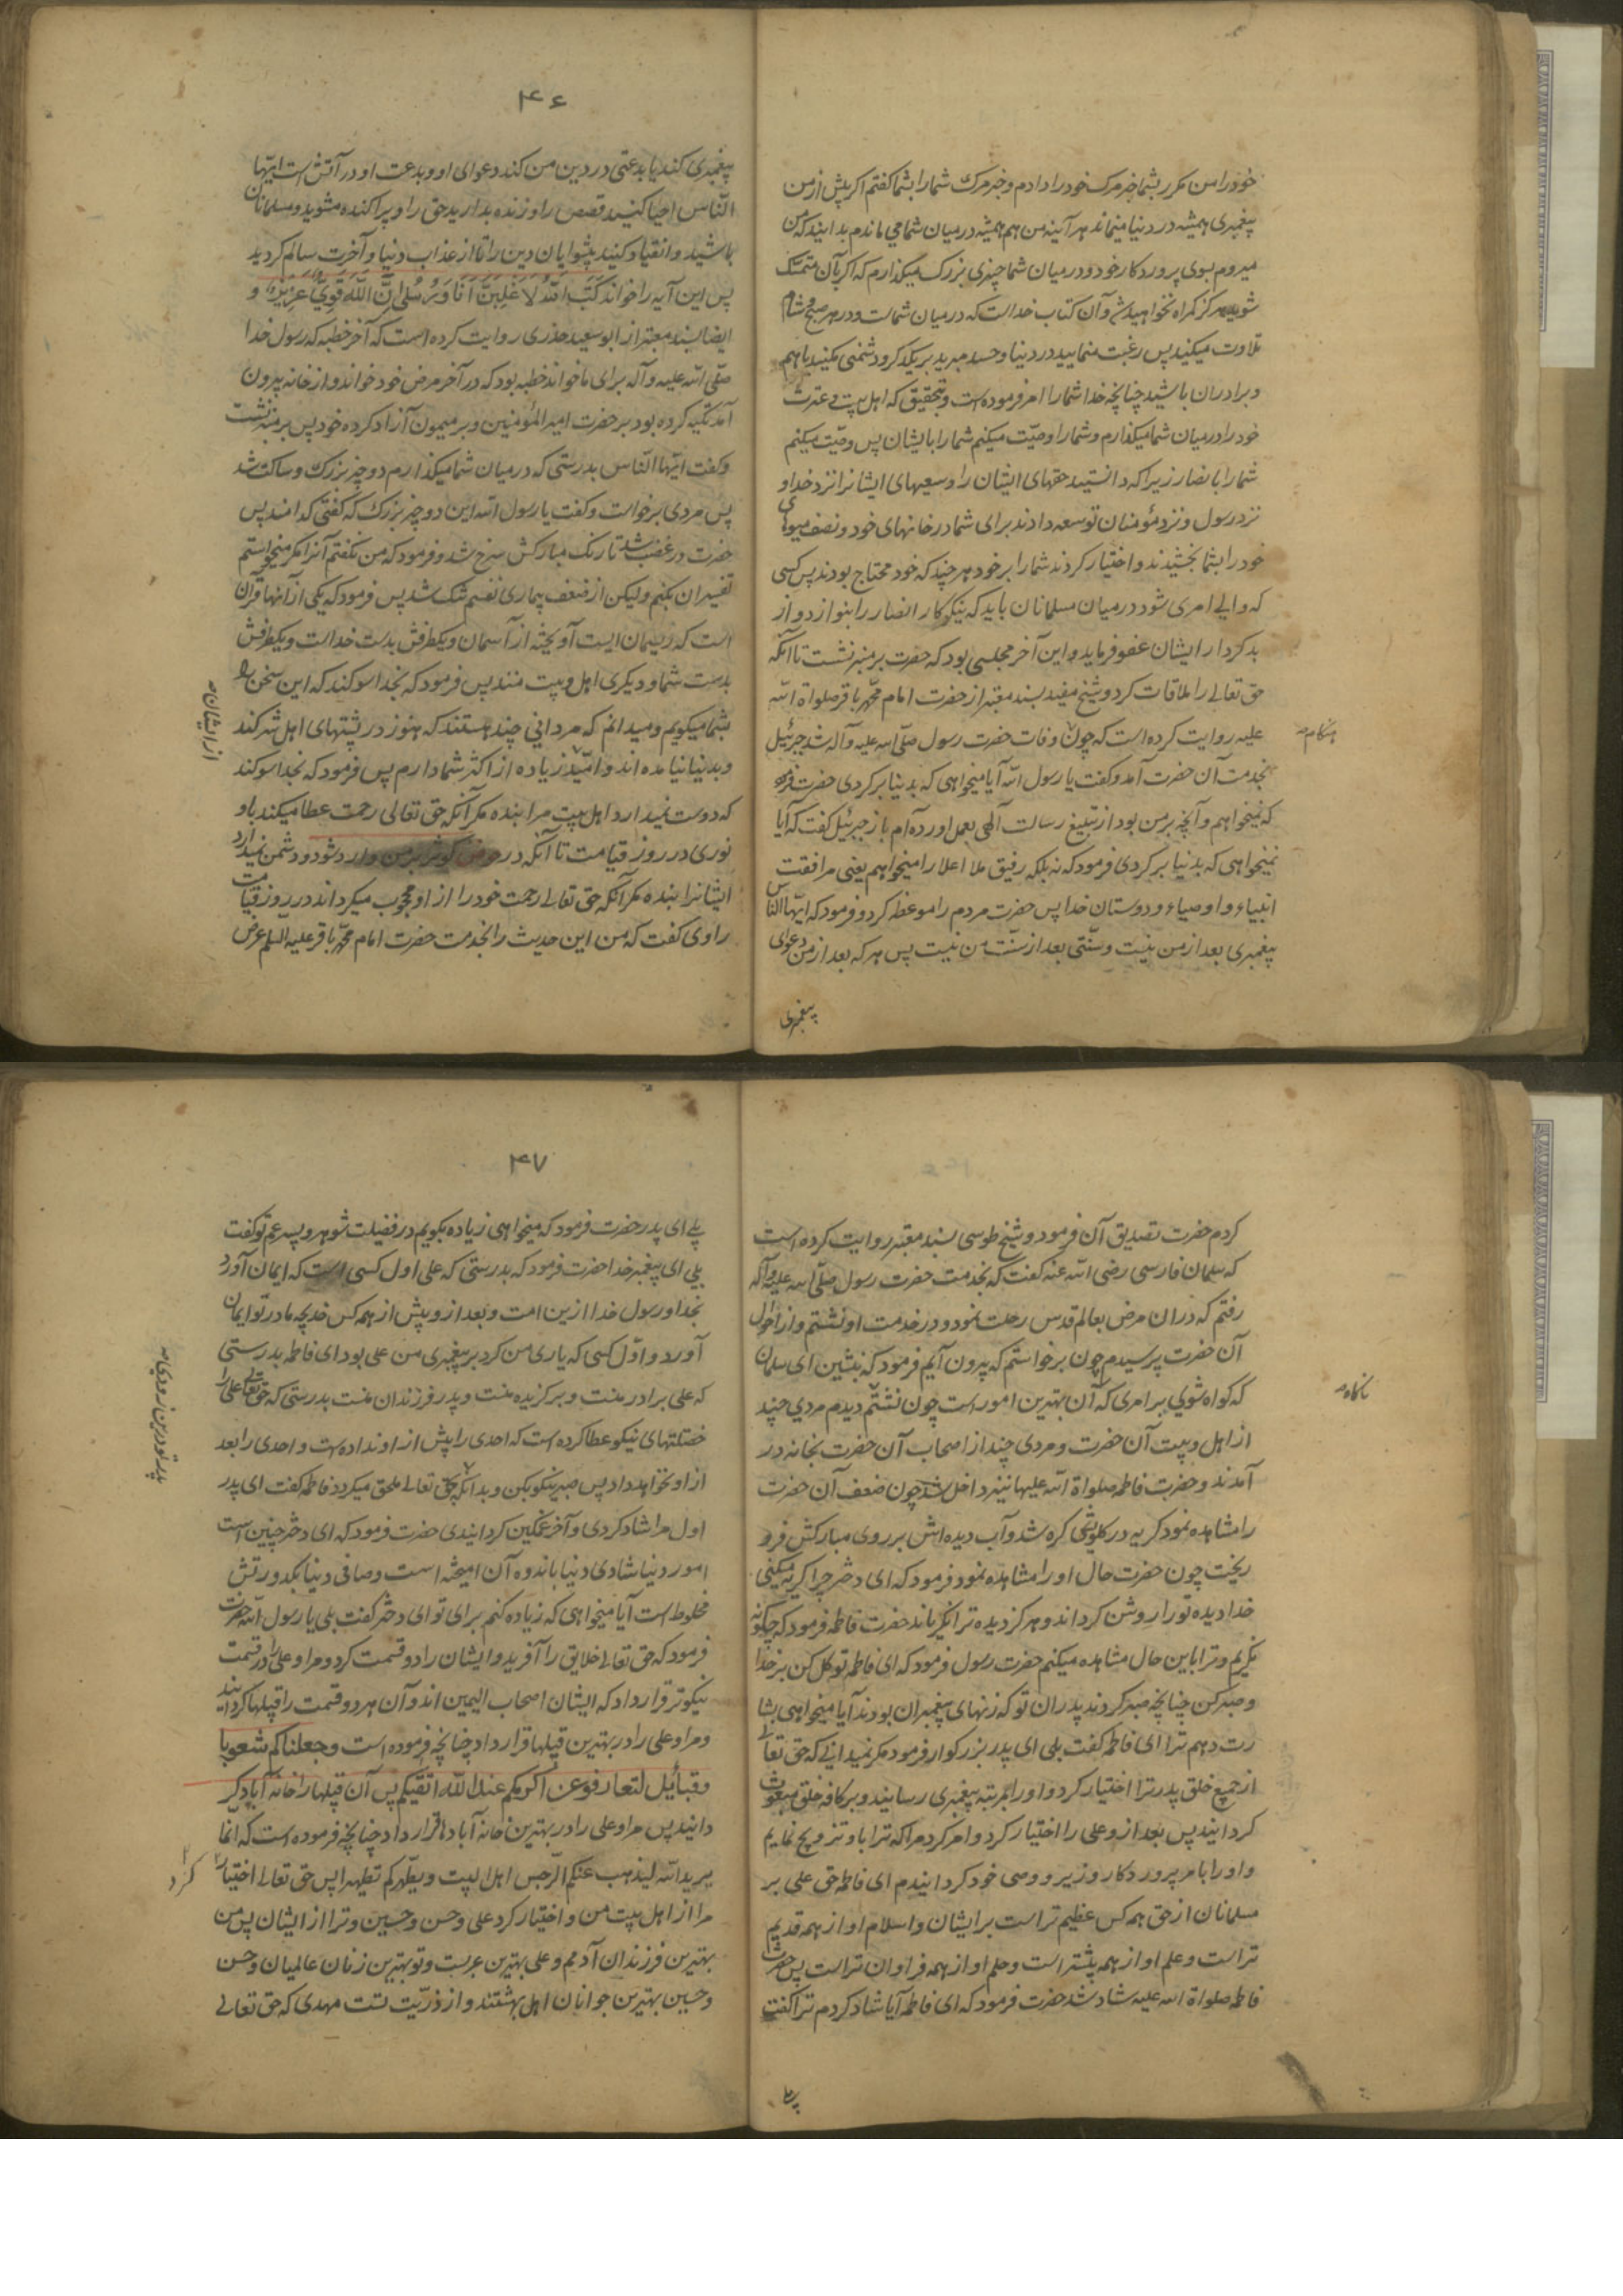 خود را من مکرر بشما خبر مرک خود را دادم و خبر مرک شما را بشما کفتم اکر پیش از من
پیغمبری همیشه در دنیا میماند هر آینه من هم همیشه در میان شما می ماندم بدانید که من
میروم بسوی پروردکار خود و در میان شما چیزی بزرک میکذارم که اکر بآن متمسک
شوید هرکز کمراه نخواهید شد و آن کتاب خداست که در میان شماست و در هر صبح و شام
تلاوت میکنید پس رغبت منمایید در دنیا و حسد مبرید بر یکدکر و دشمنی مکنید با هم
و برادران باشید چنانچه خدا شما را امر فرموده است و بتحقیق که اهل بیت و عترت
خود را در میان شما میکذارم و شما را وصیّت میکنم شما را بایشان پس وصیّت میکنم
شما را بانصار زیرا که دانستید حقهای ایشان را و سعیهای ایشانرا نزد خدا و
نزد رسول و نزد مؤمنان توسعه دادند برای شما در خانهای خود و نصف میوهای
خود را بشما بخشیدند و اختیار کردند شما را بر خود هر چند که خود محتاج بودند پس کسی
که والی امری شود در میان مسلمانان باید که نیکوکار انصار را بنوازد و از
بدکردار ایشان عفو فرماید و این آخر مجلسی بود که حضرت بر منبر نشست تا آنکه
حق تعالی را ملاقات کرد و شیخ مفید بسند معتبر از حضرت امام محمّد باقر صلواة الله
علیه روایت کرده است که چون وفات حضرت رسول صلّی الله علیه و آله شد جبرئیل
هنکام
بخدمت آن حضرت آمد و کفت یا رسول الله آیا میخواهی که بدنیا بر کردی حضرت فرمود
که نمیخواهم و آنچه بر من بود از تبلیغ رسالت الهی بعمل آورده ام باز جبرئیل کفت که آیا
نمیخواهی که بدنیا بر کردی فرمود که نه بلکه رفیق ملاء اعلا را میخواهم یعنی مرافقت
انبیاء و اوصیاء و دوستان خدا پس حضرت مردم را موعظه کرد و فرمود که ایّها الناس
پیغمبری بعد از من نیست و سنّتی بعد از سنّت من نیست پس هر که بعد از من دعوای
پیغمبری
۴۶
پیغمبری کند یا بدعتی در دین من کند دعوای او و بدعت او در آتش است ایّها
النّاس احیا کنید قصاص را و زنده بدارید حق را و پراکنده مشوید و مسلمانان
باشید و انقیاد کنید پیشوایان دین را تا از عذاب دنیا و آخرت سالم کردید
پس این آیه را خواند کَتَبَ اللّهُ لَاَغْلِبَنَّ اَنَا وَ رُسُلی اِنَّ اللّهَ قَوِیٌّ عَزِیزٌ و
ایضا بسند معتبر از ابو سعید خدری روایت کرده است که آخر خطبه که رسول خدا
صلّی الله علیه و آله برای ما خواند خطبه بود که در آخر مرض خود خواند و از خانه بیرون
آمد تکیه کرده بود بر حضرت امیر المؤمنین و بر میمون آزاد کرده خود پس بر منبر نشست
و کفت ایّها النّاس بدرستی که در میان شما میکذارم دو چیز بزرک و ساکت شد
پس مردی برخواست و کفت یا رسول الله این دو چیز بزرک که کفتی کدامند پس
حضرت در غضب شد تا رنک مبارکش سرخ شد و فرمود که من نکفتم آنرا مکر میخواستم
تفسیر آن بکنم و لیکن از ضعف بیماری نفسم تنک شد پس فرمود که یکی از آنها قرآن
است که ریسمان ایست آویخته از آسمان و یکطرفش بدست خداست و یکطرفش
بدست شما و دیکری اهل بیت منند پس فرمود که بخدا سوکند که این سخن را
بشما میکویم و میدانم که مردانی چند هستند که هنوز در پشتهای اهل شرکند
و بدنیا نیامده اند و امّید زیاده از اکثر شما دارم پس فرمود که بخدا سوکند
از ایشان
که دوست نمیدارد اهل بیت مرا بنده مکر آنکه حق تعالی رحمت عطا میکند باو
نوری در روز قیامت تا آنکه در حوض کوثر بر من وارد شود و دشمن نمیدارد
ایشانرا بنده مکر آنکه حق تعالی رحمت خود را از او محجوب میکرداند در روز قیامت
راوی کفت که من این حدیث را بخدمت حضرت امام محمّد باقر علیه السلم عرض
کردم حضرت تصدیق آن فرمود و شیخ طوسی بسند معتبر روایت کرده است
که سلمان فارسی رضی الله عنه کفت که بخدمت حضرت رسول صلّی الله علیه و آله
رفتم که در ان مرض بعالم قدس رحلت نمود و در خدمت او نشستم و از احوال
آن حضرت پرسیدم چون برخواستم که بیرون آیم فرمود که بنشین ای سلمان
که کواه شوی بر امری که آن بهترین امور است چون نشستم دیدم مردی چند
ناکاه
از اهل بیت آن حضرت و مردی چند از اصحاب آن حضرت بخانه در
آمدند و حضرت فاطمه صلواة الله علیها نیز داخل شد چون ضعف آن حضرت
را مشاهده نمود کریه در کلویش کره شد و آب دیده اش بر روی مبارکش فرو
ریخت چون حضرت حال او را مشاهده نمود فرمود که ای دختر چرا کریه میکنی
خدا دیده تو را روشن کرداند و هرکز دیده ترا نکریاند حضرت فاطمه فرمود که چکونه
نکریم و ترا باین حال مشاهده میکنم حضرت رسول فرمود که ای فاطمه توکل کن بر خدا
و صبر کن چنانچه صبر کردند پدران تو که پیغمبران بودند آیا میخواهی بشا
رت دهم ترا ای فاطمه کفت بلی ای پدر بزرکوار فرمود مکر نمیدانی که حق تعالی
از جمیع خلق پدر ترا اختیار کرد و او را بمرتبه پیغمبری رسانید و بر کافه خلق مبعوث
کردانید پس بعد از و علی را اختیار کرد و امر کرد مرا که ترا باو تزویج نمایم
و او را بامر پروردکار وزیر و وصی خود کردانیدم ای فاطمه حق علی بر
مسلمانان از حق همه کس عظیم تر است بر ایشان و اسلام او از همه قدیم
تر است و علم او از همه بیشتر است و حلم او از همه فراوان تر است پس حضرت
فاطمه صلواة الله علیه شاد شد حضرت فرمود که ای فاطمه آیا شاد کردم ترا کفت
بلی
۴۷
بلی ای پدر حضرت فرمود که میخواهی زیاده بکویم در فضیلت شوهر و پسر عم تو کفت
بلی ای پیغمبر خدا حضرت فرمود که بدرستی که علی اول کسی است که ایمان آورد
بخدا و رسول خدا ازین امت و بعد از و پیش از همه کس خدیجه مادر تو ایمان
آورد و اوّل کسی که یاری من کرد بر پیغمبری من علی بود ای فاطمه بدرستی
که علی برادر منست و برکزیده منست و پدر فرزندان منست بدرستی که حق تعالی علی را
خصلتهای نیکو عطا کرده است که احدی را پیش از او نداده است و احدی را بعد
از او نخواهد داد پس صبر نیکو بکن و بدانکه بحق تعالی ملحق میکردد فاطمه کفت ای پدر
پدر تو درین زودی
اول مرا شاد کردی و آخر غمکین کردانیدی حضرت فرمود که ای دختر چنین است
امور دنیا شادی دنیا باندوه آن آمیخته است و صافی دنیا بکدورتش
مخلوط است آیا میخواهی که زیاده کنم برای تو ای دختر کفت بلی یا رسول الله حضرت
فرمود که حق تعالی خلایق را آفرید و ایشان را دو قسمت کرد و مرا و علی را در قسمت
نیکوتر قرار داد که ایشان اصحاب الیمین اند و آن هر دو قسمت را قبیلها کردانید
و مرا و علی را در بهترین قبیلها قرار داد چنانچه فرموده است وجعلناکم شعوبا
وقبائل لتعارفوا ان اکرمکم عند اللّه اتقیکم پس آن قبیلها را خانه آباد کر
دانید پس مرا و علی را در بهترین خانه آبادها قرار داد چنانچه فرموده است که انّما
یرید الله لیذهب عنکم الرّجس اهل البیت و یطهّرکم تطهیرا پس حق تعالی اختیار
کرد
مرا از اهل بیت من و اختیار کرد علی و حسن و حسین و ترا از ایشان پس من
بهترین فرزندان آدمم و علی بهترین عربست و تو بهترین زنان عالمیان و حسن
و حسین بهترین جوانان اهل بهشتند و از ذرّیّت تست مهدی که حق تعالی